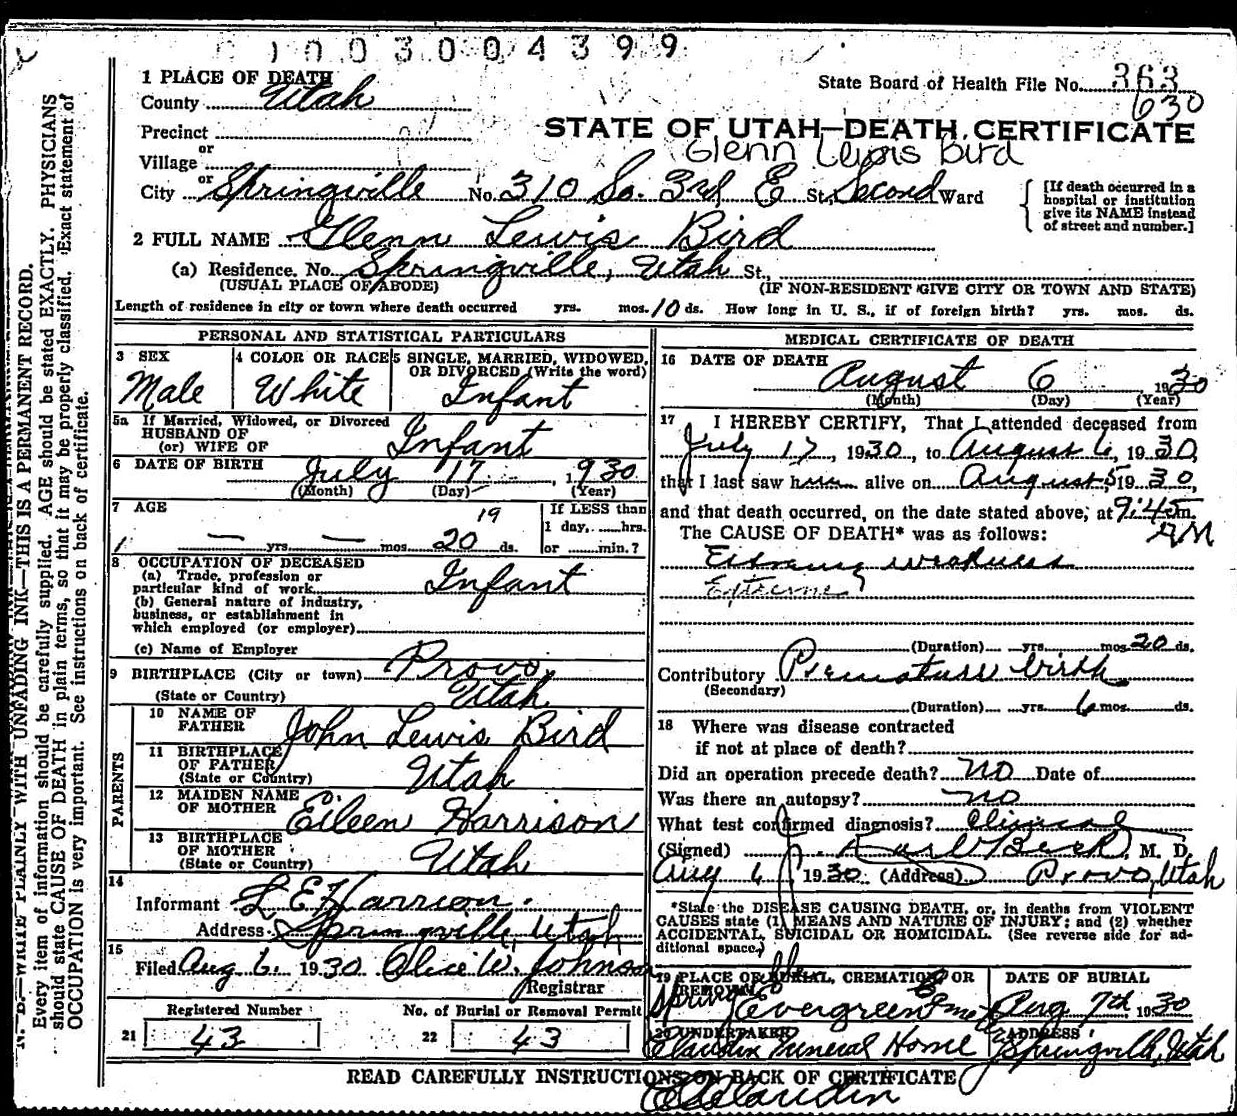 003004399
1 PLACE OF DEATH
State Board of Health File No. 363
630
County Utah
STATE OF UTAH—DEATH CERTIFICATE
Precinct
or
Glenn Lewis Bird
Village
or
City Springville No. 310 So. 3rd E St., Second Ward
[If death occurred in a
hospital or institution
give its NAME instead
of street and number.]
2 FULL NAME Glenn Lewis Bird
(a) Residence. No. Springville, Utah St.,
(USUAL PLACE OF ABODE) (IF NON-RESIDENT GIVE CITY OR TOWN AND STATE)
Length of residence in city or town where death occurred yrs. mos. 10 ds. How long in U. S., if of foreign birth? yrs. mos. ds.
PERSONAL AND STATISTICAL PARTICULARS
3 SEX
Male
4 COLOR OR RACE
White
5 SINGLE, MARRIED, WIDOWED,
OR DIVORCED (Write the word)
Infant
5a If Married, Widowed, or Divorced
HUSBAND OF
(or) WIFE OF Infant
6 DATE OF BIRTH July 17, 1930
(Month) (Day) (Year)
7 AGE
— yrs. — mos. 20 ds.
19
If LESS than
1 day, ......hrs.
or ......min.?
8 OCCUPATION OF DECEASED
(a) Trade, profession or
particular kind of work Infant
(b) General nature of industry,
business, or establishment in
which employed (or employer)
(c) Name of Employer
9 BIRTHPLACE (City or town) Provo,
(State or Country) Utah
PARENTS
10 NAME OF
FATHER John Lewis Bird
11 BIRTHPLACE
OF FATHER
(State or Country) Utah
12 MAIDEN NAME
OF MOTHER Eileen Harrison
13 BIRTHPLACE
OF MOTHER
(State or Country) Utah
14
Informant L E Harrison.
Address Springville, Utah
15
Filed Aug 6. 1930 Alice W. Johnson
Registrar
Registered Number
21 43
No. of Burial or Removal Permit
22 43
MEDICAL CERTIFICATE OF DEATH
16 DATE OF DEATH
August 6 1930
(Month) (Day) (Year)
17 I HEREBY CERTIFY, That I attended deceased from
July 17, 1930, to August 6, 1930,
that I last saw him alive on August 5, 1930,
and that death occurred, on the date stated above, at 9:45 m.
AM
The CAUSE OF DEATH* was as follows:
Extreme weakness
Extreme
(Duration) yrs. mos. 20 ds.
Contributory Premature birth
(Secondary)
(Duration) yrs. 6 mos. ds.
18 Where was disease contracted
if not at place of death?
Did an operation precede death? No Date of
Was there an autopsy? no
What test confirmed diagnosis? Clinical
(Signed) J. Karl Beck, M. D.
Aug 6 1930 (Address) Provo, Utah
*State the DISEASE CAUSING DEATH, or, in deaths from VIOLENT
CAUSES state (1) MEANS AND NATURE OF INJURY; and (2) whether
ACCIDENTAL, SUICIDAL OR HOMICIDAL. (See reverse side for ad-
ditional space.)
19 PLACE OF BURIAL, CREMATION OR
REMOVAL
Springville
Evergreen Cem
DATE OF BURIAL
Aug 7th, 1930
20 UNDERTAKER
Claudin Funeral Home
ADDRESS
Springville, Utah
READ CAREFULLY INSTRUCTIONS ON BACK OF CERTIFICATE
Claudin
N. B.—WRITE PLAINLY WITH UNFADING INK—THIS IS A PERMANENT RECORD.
Every item of information should be carefully supplied. AGE should be stated EXACTLY. PHYSICIANS
should state CAUSE OF DEATH in plain terms, so that it may be properly classified. Exact statement of
OCCUPATION is very important. See instructions on back of certificate.